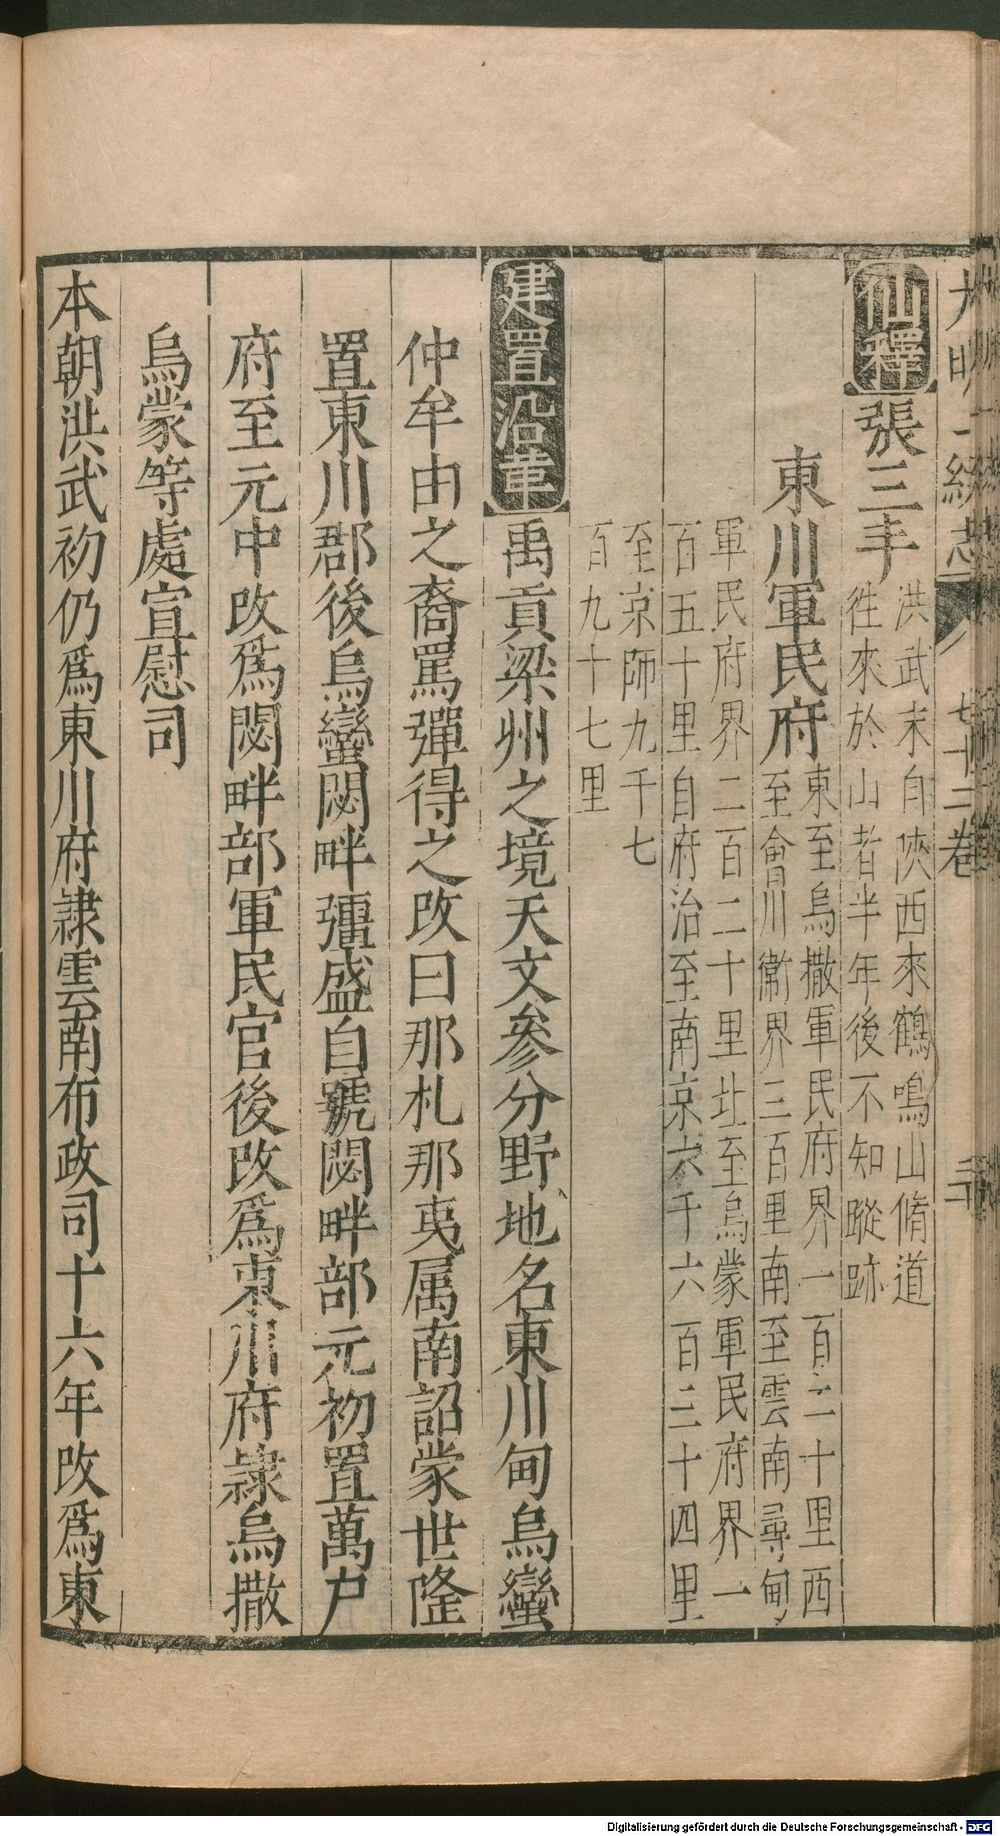 大明一統志 七十二卷 二十
仙釋 張三丰 洪武末自陜西來鶴鳴山脩道
徃來於山者半年後不知蹤跡
東川軍民府 東至烏撒軍民府界一百二十里西
至會川衛界三百里南至雲南尋甸
軍民府界二百二十里北至烏蒙軍民府界一
百五十里自府治至南京六千六百三十四里
至京師九千七
百九十七里
建置沿革 禹貢梁州之境天文參分野地名東川甸烏蠻
仲牟由之裔罵彈得之改曰那札那夷属南詔蒙世隆
置東川郡後烏蠻閟畔彊盛自號閟畔部元初置萬户
府至元中改爲閟畔部軍民官後改爲東川府隷烏撒
烏蒙等處宣慰司
本朝洪武初仍爲東川府隷雲南布政司十六年改爲東
Digitalisierung gefördert durch die Deutsche Forschungsgemeinschaft - DFG